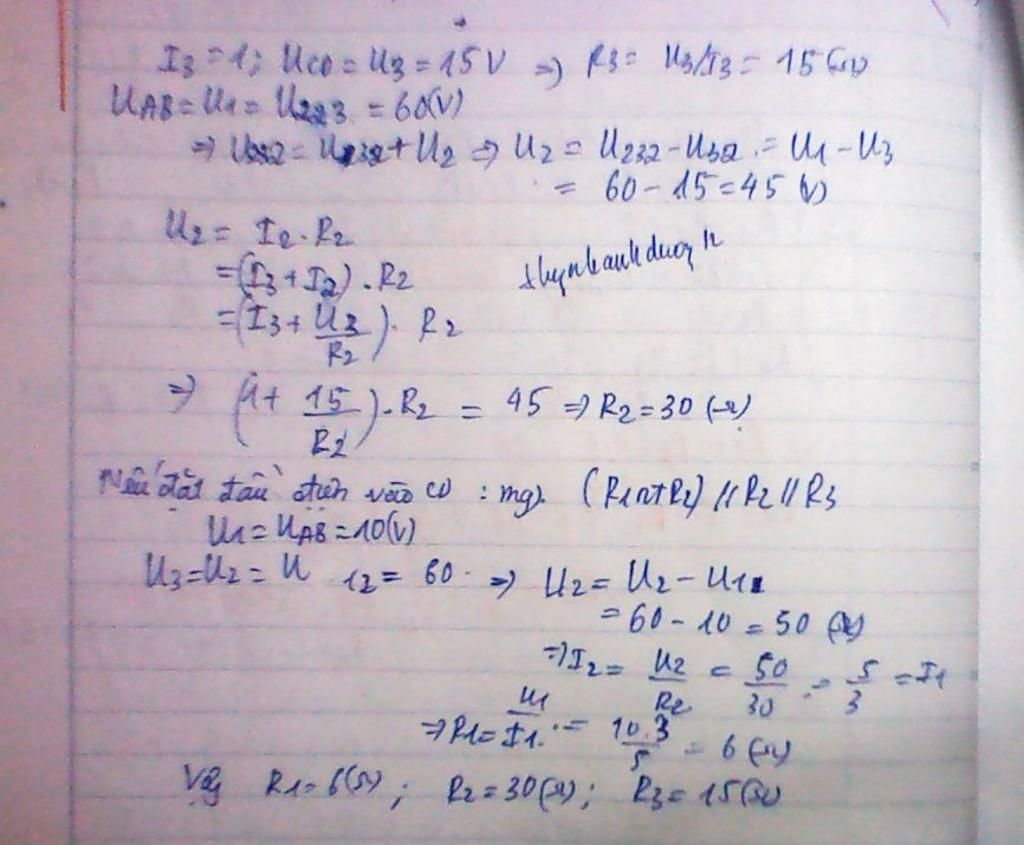 I3 = 1; UCD = U3 = 15V => R3 = U3/I3 = 15(Ω)
UAB = U1 = U223 = 60(V)
=> U232 = U232 + U2 => U2 = U232 - U32 = U1 - U3
= 60 - 15 = 45 (V)
U2 = I2 . R2
= (I3 + I2) . R2
= (I3 + U3/R2) . R2
=> (1 + 15/R2) . R2 = 45 => R2 = 30 (Ω)
Nếu đặt đầu điện vào CD : mg). (R1 nt R2) // R2 // R3
U1 = UAB = 10(V)
U3 = U2 = U 12 = 60 => U2 = U2 - U1
= 60 - 10 = 50 (V)
=> I2 = U2/R2 = 50/30 = 5/3 = I1
=> R1 = U1/I1 = 10.3/5 = 6 (Ω)
Vậy R1 = 6(Ω) ; R2 = 30(Ω) ; R3 = 15(Ω)